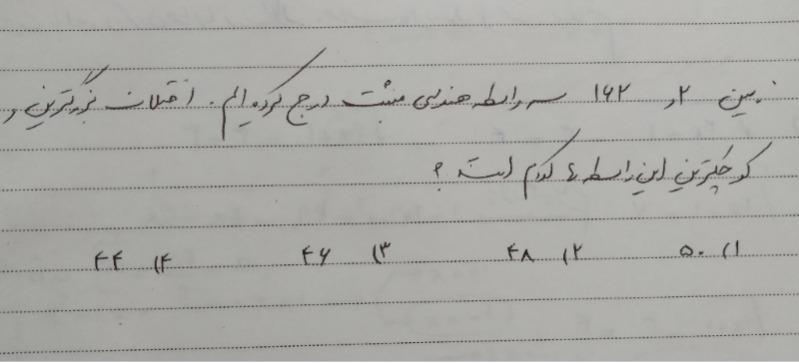 بین ۲ و ۱۶۲ سه واسطه هندسی مثبت درج کرده ایم. اختلاف بزرگترین و
کوچکترین این واسطه ها کدام است؟
۱) ۵۰ ۲) ۴۸ ۳) ۴۶ ۴) ۴۴